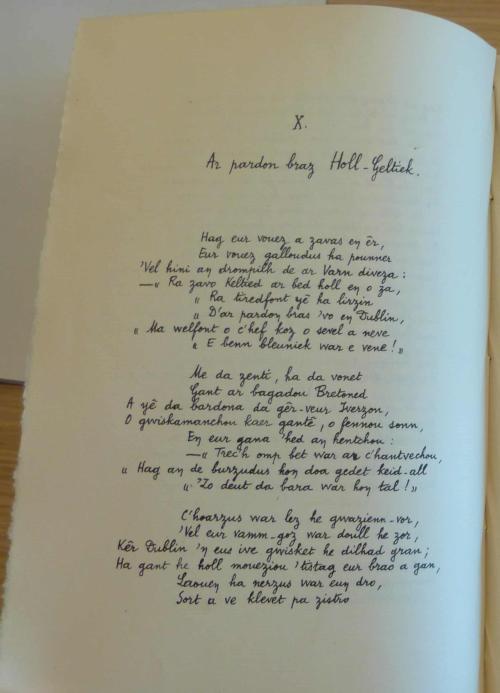 X.
Ar pardon braz Holl-Geltiek.
Hag eur vouez a zavas en êr,
Eur vouez galloudus ha pounner
'Vel hini an drompilh de ar Varn diveza :
—„ Ra zavo Keltied ar bed holl en o za,
„ Ra tiredfont yê ha birzin
„ D'ar pardon bras 'vo en Dublin,
„ Ma welfont o c'hef koz o sevel a neve
„ E benn bleuniek war e vene ! „
Me da zenti, ha da vonet
Gant ar bagadou Bretoned
A yê da bardona da gêr-veur Iverzon,
O gwiskamanchou kaer gantê, o fennou sonn,
En eur gana 'hed an hentchou :
—„ Trec'h omp bet war an c'hantvechou,
„ Hag an de burzudus hon doa gedet keid-all
„ 'Zo deut da bara war hon tal ! „
C'hoarzus war lez he gwazienn-vor,
'Vel eur vamm-goz war doull he zor,
Kêr Dublin 'n eus ive gwisket he dilhad gran ;
Ha gant he holl moueziou 'tistag eur brao a gan,
Laouen ha nerzus war eun dro,
Sort a ve klevet pa zistro